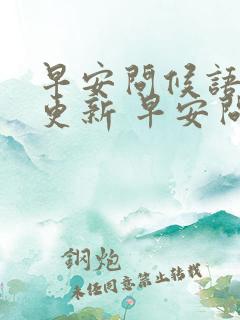 早安問候語
更新 早安問
鋼炮
未經同意禁止轉載